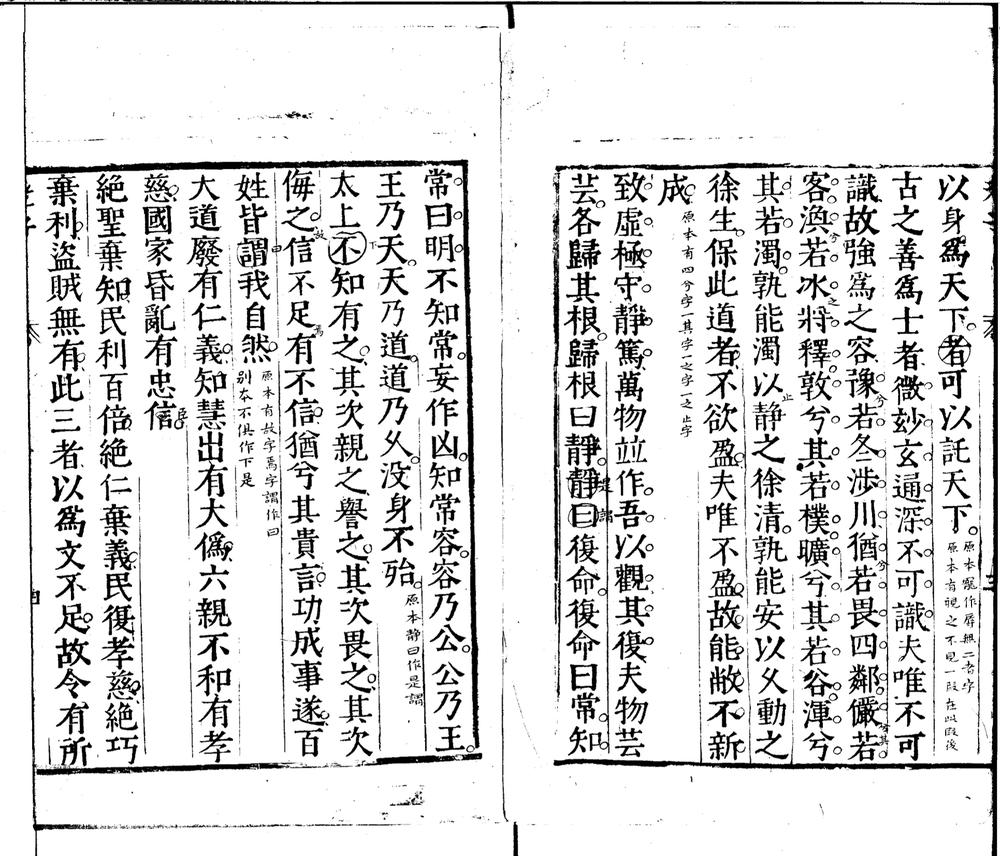 以身爲天下者可以託天下原本寵作辱無二者字原本有視之不見一段在此段後
古之善爲士者微妙玄通深不可識夫唯不可
識故強爲之容豫若冬涉川猶若畏四鄰儼若
客渙若冰將釋敦兮其若樸曠兮其若谷渾兮
其若濁孰能濁以静之徐清孰能安以久動之
徐生保此道者不欲盈夫唯不盈故能敝不新
成原本有四兮字一其字一之字一之止字
致虛極守靜篤萬物竝作吾以觀其復夫物芸
芸各歸其根歸根曰靜靜曰復命復命曰常知
常曰明不知常妄作凶知常容容乃公公乃王
王乃天天乃道道乃久没身不殆原本静曰作是謂
太上不知有之其次親之譽之其次畏之其次
侮之信不足有不信猶兮其貴言功成事遂百
姓皆謂我自然原本有故字焉字謂作曰別本不俱作下是
大道廢有仁義知慧出有大僞六親不和有孝
慈國家昏亂有忠信
絶聖棄知民利百倍絶仁棄義民復孝慈絶巧
棄利盜賊無有此三者以爲文不足故令有所